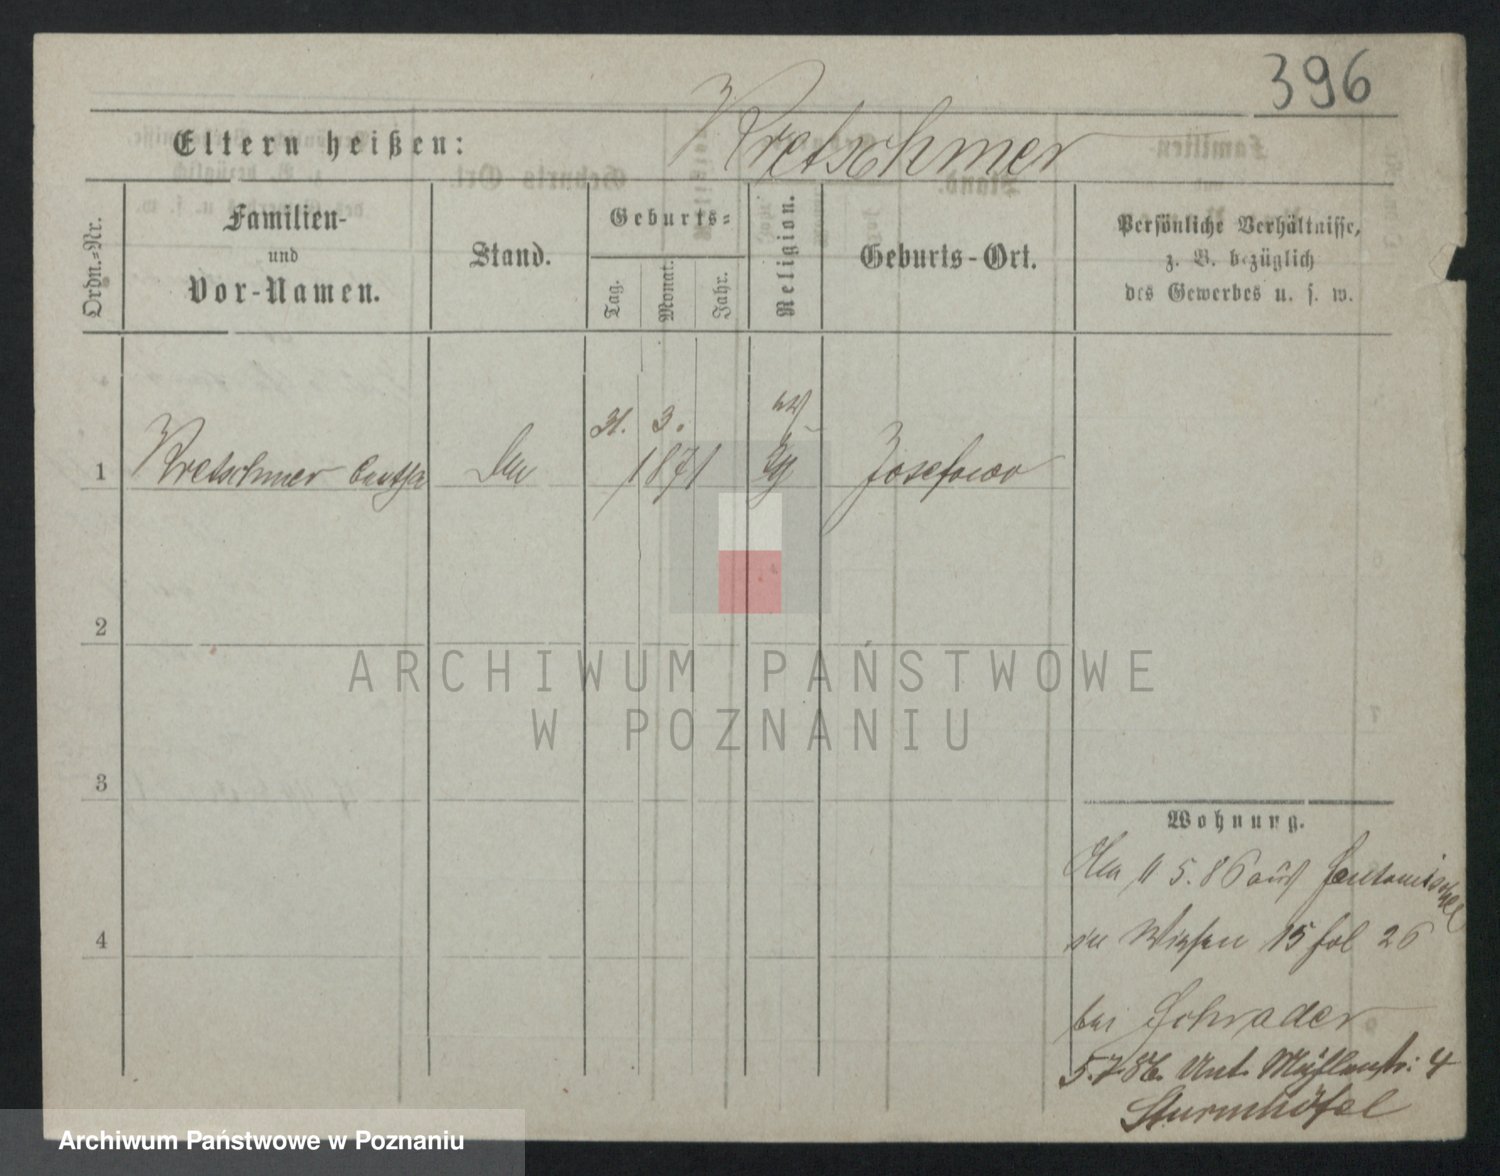 396
Kretschmer
Eltern heißen:
Ordn.=Nr.
Familien-
und
Vor-Namen.
Stand.
Geburts=
Tag.
Monat.
Jahr.
Religion.
Geburts-Ort.
Persönliche Verhältnisse,
z. B. bezüglich
des Gewerbes u. s. w.
31. 3.
1 Kretschmer 1871 Josefowo
2
ARCHIWUM PAŃSTWOWE
W POZNANIU
3
Wohnung.
5.86 aus
4
15 fol 26
bei Schrader
5.7.86. Unt. Mühlenstr: 4
Sturmhöfel
Archiwum Państwowe w Poznaniu